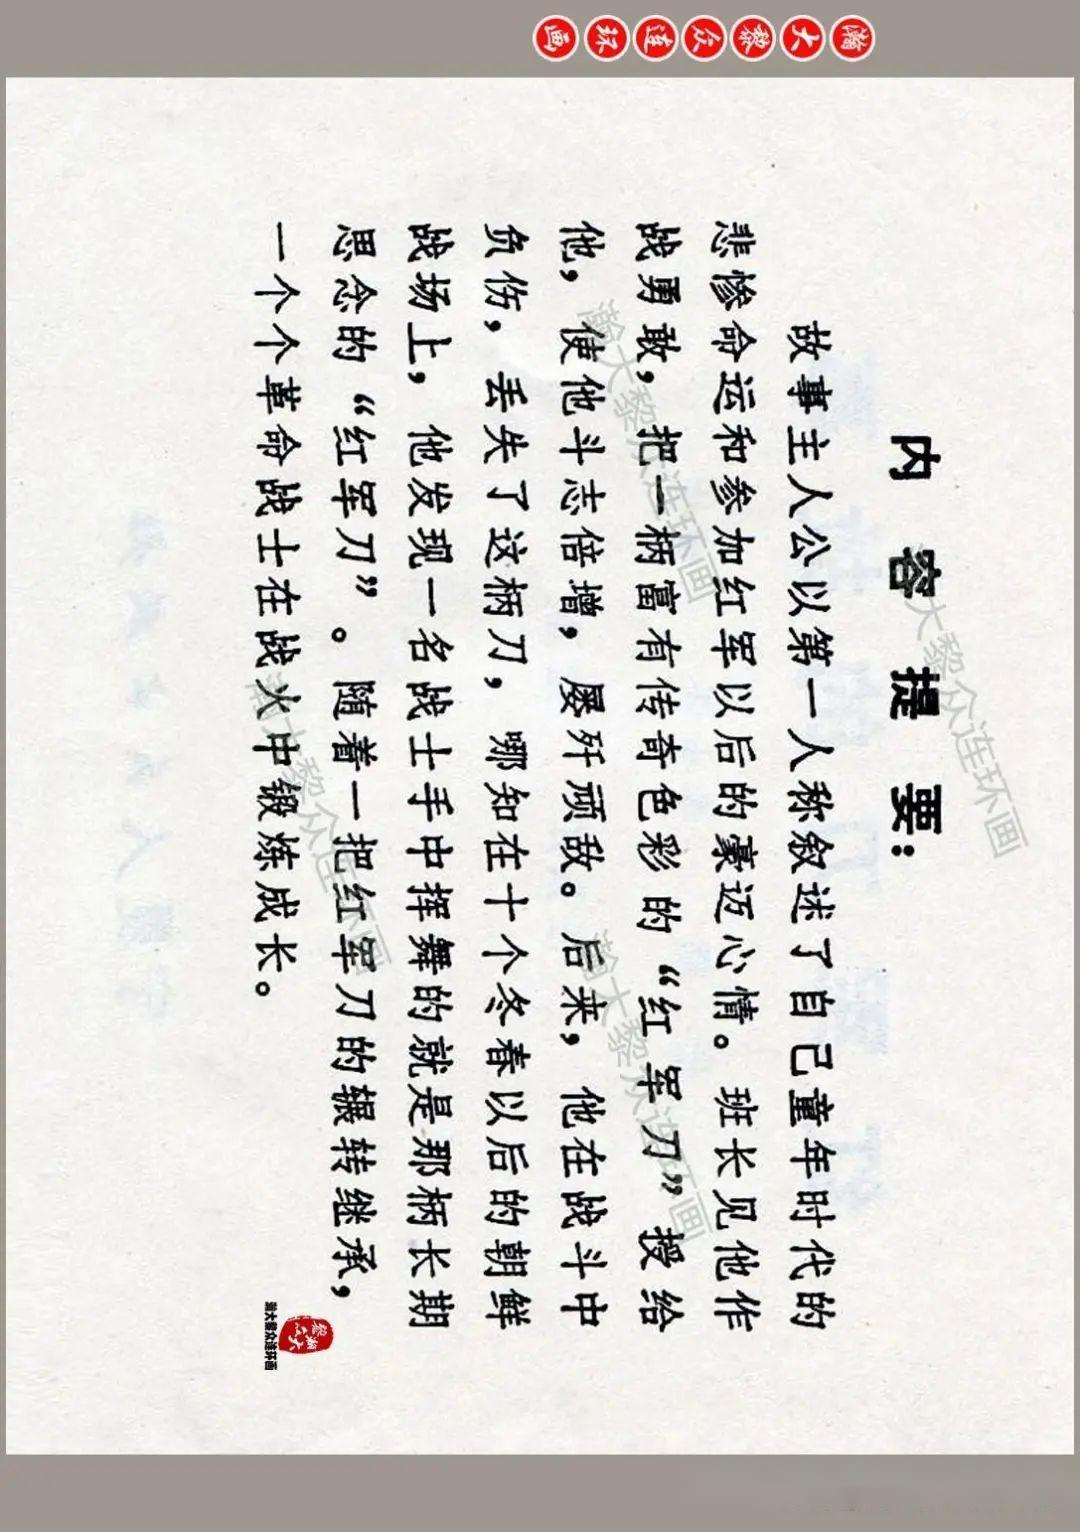 瀚大黎众连环画
内容提要：
故事主人公以第一人称叙述了自己童年时代的
悲惨命运和参加红军以后的豪迈心情。班长见他作
战勇敢，把一柄富有传奇色彩的“红军刀”授给
他，使他斗志倍增，屡歼顽敌。后来，他在战斗中
负伤，丢失了这柄刀，哪知在十个冬春以后的朝鲜
战场上，他发现一名战士手中挥舞的就是那柄长期
思念的“红军刀”。随着一把红军刀的辗转继承，
一个个革命战士在战火中锻炼成长。
瀚大黎众连环画
瀚大黎众连环画
瀚大黎众连环画
瀚大黎众连环画
瀚大黎众
瀚大黎众连环画